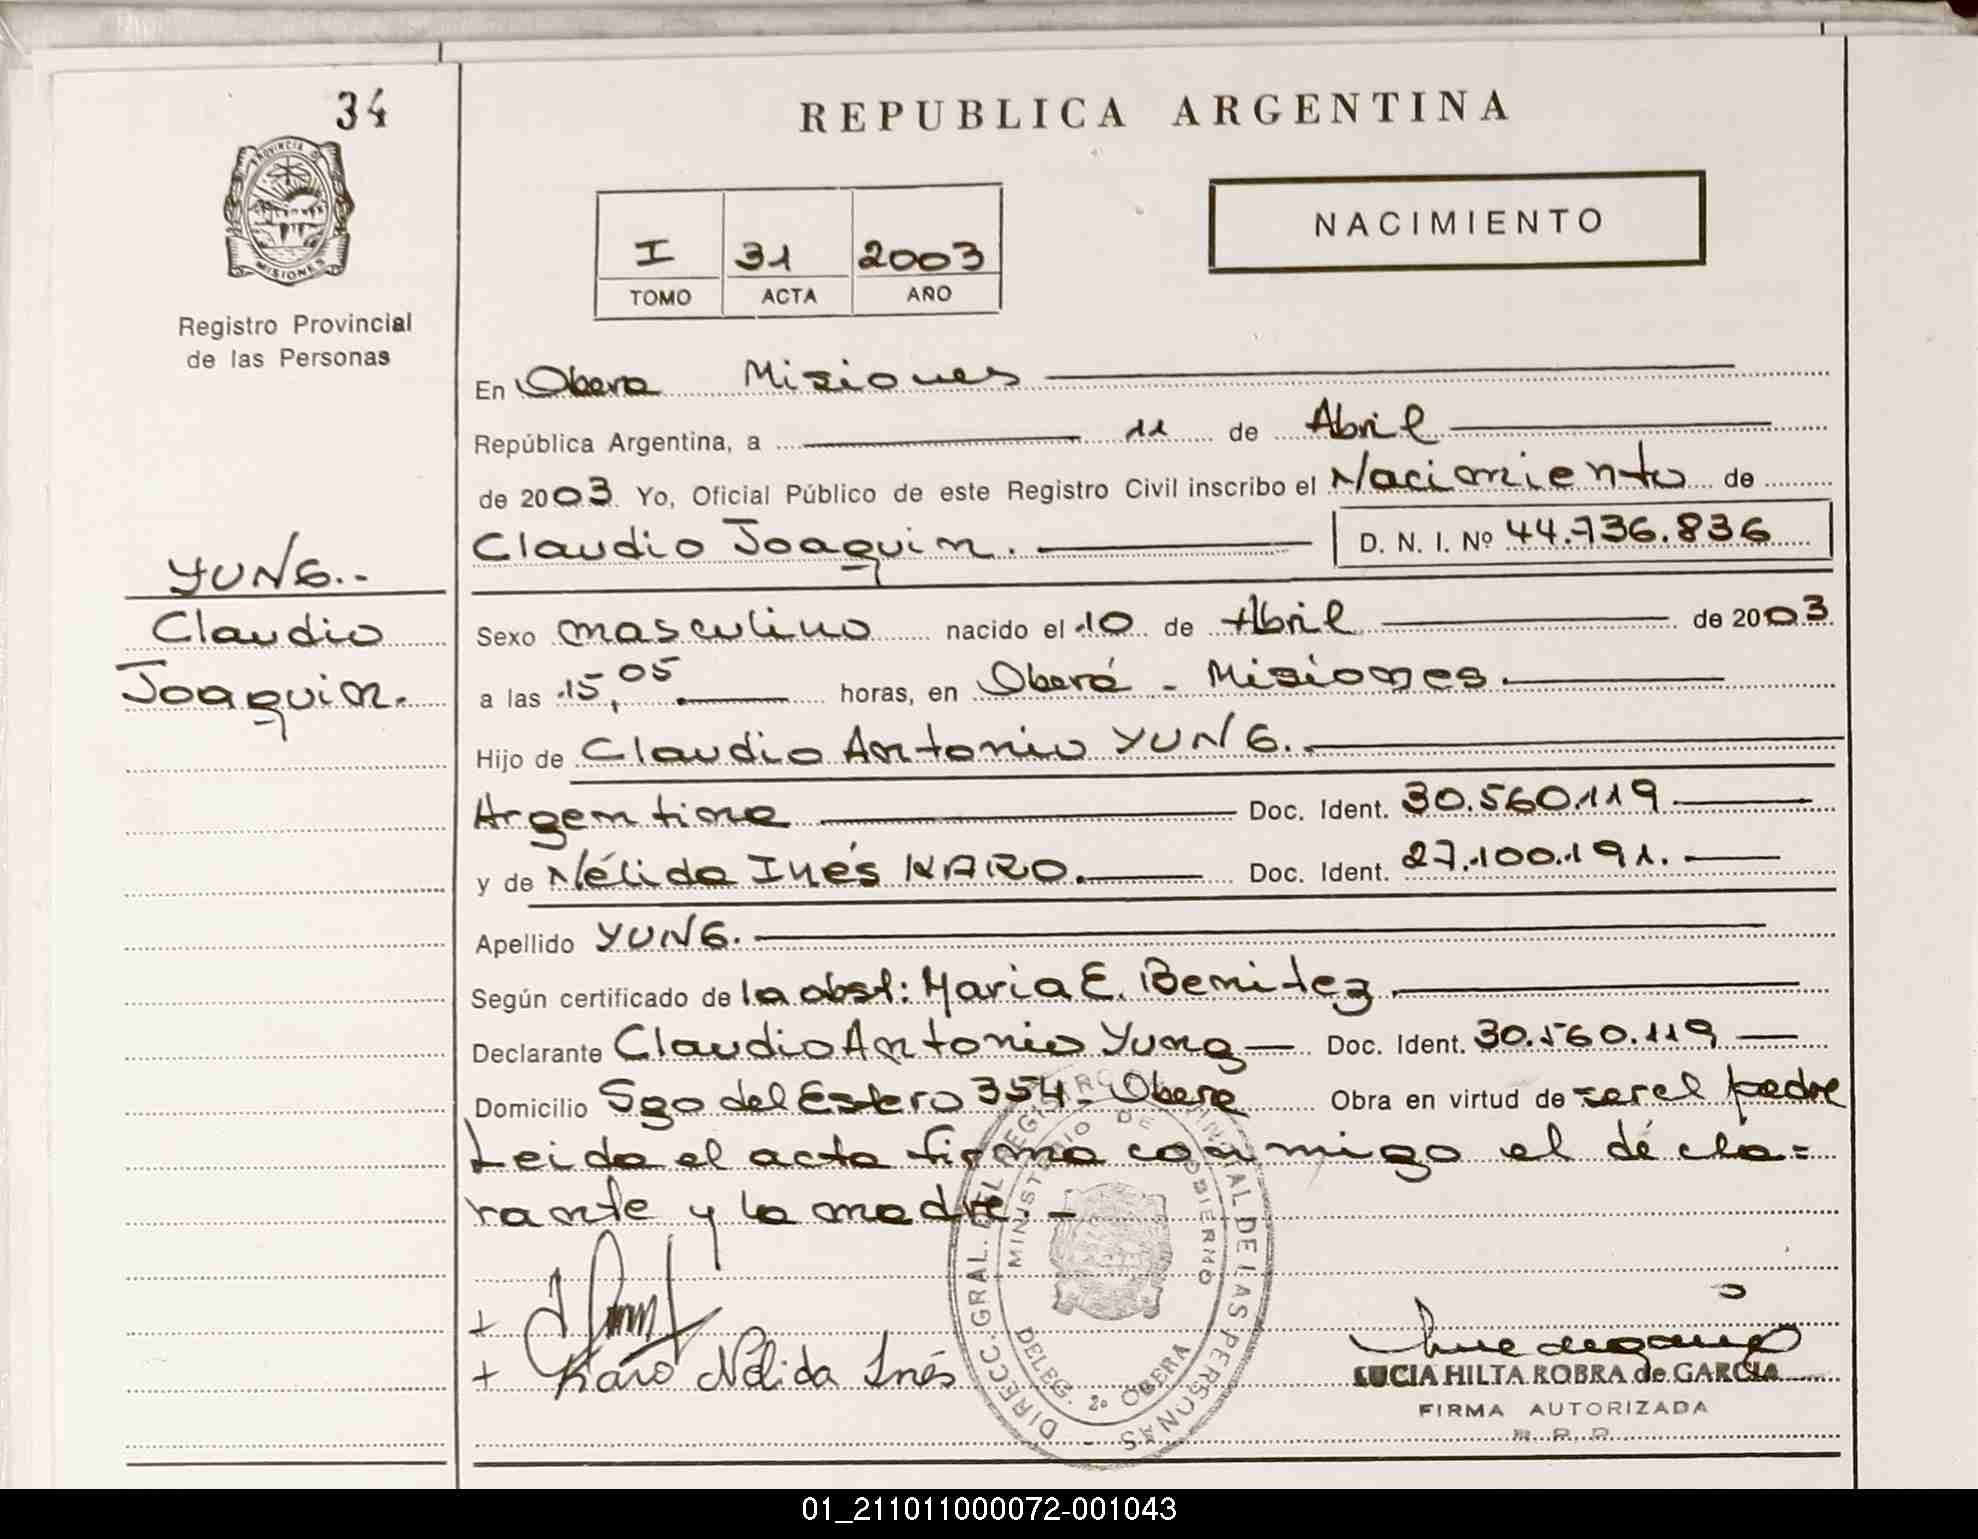 34
PROVINCIA D
MISIONES
Registro Provincial
de las Personas
YUNG.-
Claudio
Joaquin.
REPUBLICA ARGENTINA
I 31 2003
TOMO ACTA AÑO
NACIMIENTO
En Obera Misiones
República Argentina, a 11 de Abril
de 2003. Yo, Oficial Público de este Registro Civil inscribo el Nacimiento de
Claudio Joaquin. D. N. I. Nº 44.736.836
Sexo masculino nacido el 10 de Abril de 2003
a las 15,05 horas, en Oberá - Misiones.
Hijo de Claudio Antonio YUNG.
Argentina Doc. Ident. 30.560.119
y de Nélida Inés KARO. Doc. Ident. 27.100.191.
Apellido YUNG.
Según certificado de la obst: Maria E. Benitez.
Declarante Claudio Antonio Yung Doc. Ident. 30.560.119
Domicilio Sgo del Estero 354 - Obera Obra en virtud de ser el padre
Leida el acta firma conmigo el decla=
rante y la madre. -
Karo Nélida Inés
DIRECC. GRAL. DEL REGISTRO PROVINCIAL DE LAS PERSONAS
MINISTERIO DE GOBIERNO
DELEG. 2º OBERA
LUCIA HILTA ROBRA de GARCIA
FIRMA AUTORIZADA
R. P. P.
01_211011000072-001043